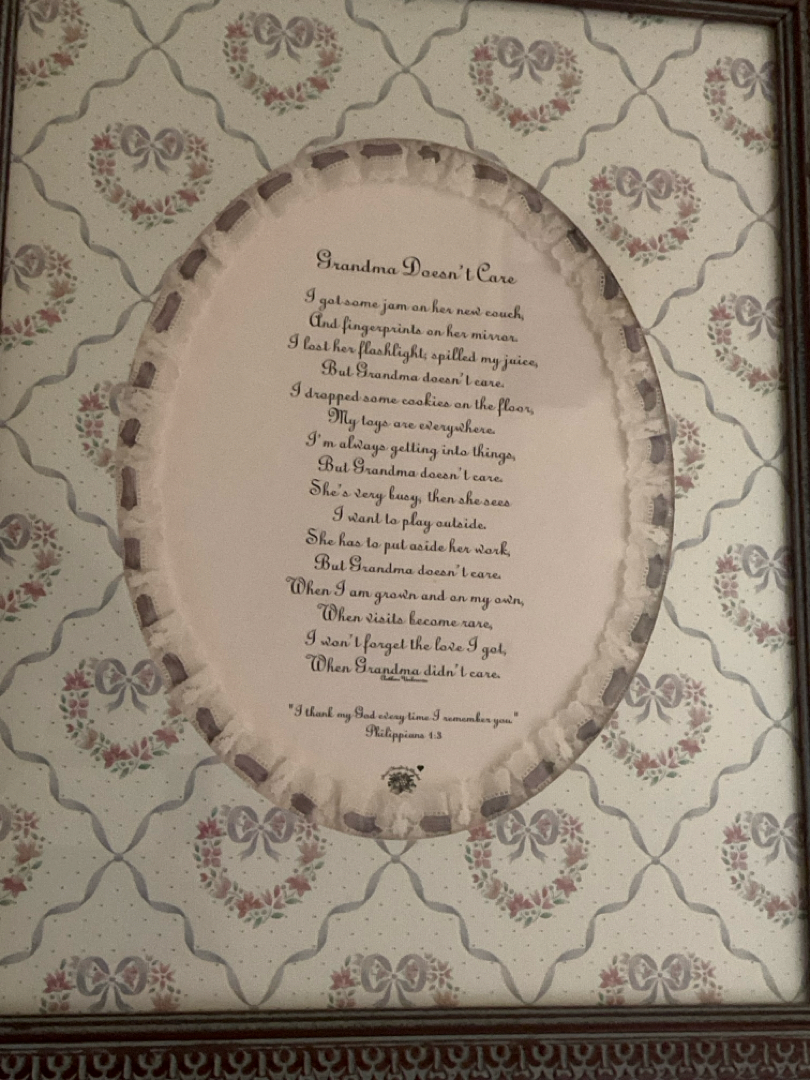 Grandma Doesn't Care
I got some jam on her new couch,
And fingerprints on her mirror.
I lost her flashlight, spilled my juice,
But Grandma doesn't care.
I dropped some cookies on the floor,
My toys are everywhere.
I'm always getting into things,
But Grandma doesn't care.
She's very busy, then she sees
I want to play outside.
She has to put aside her work,
But Grandma doesn't care.
When I am grown and on my own,
When visits become rare,
I won't forget the love I got,
When Grandma didn't care.
Author Unknown
"I thank my God every time I remember you."
Philippians 1:3